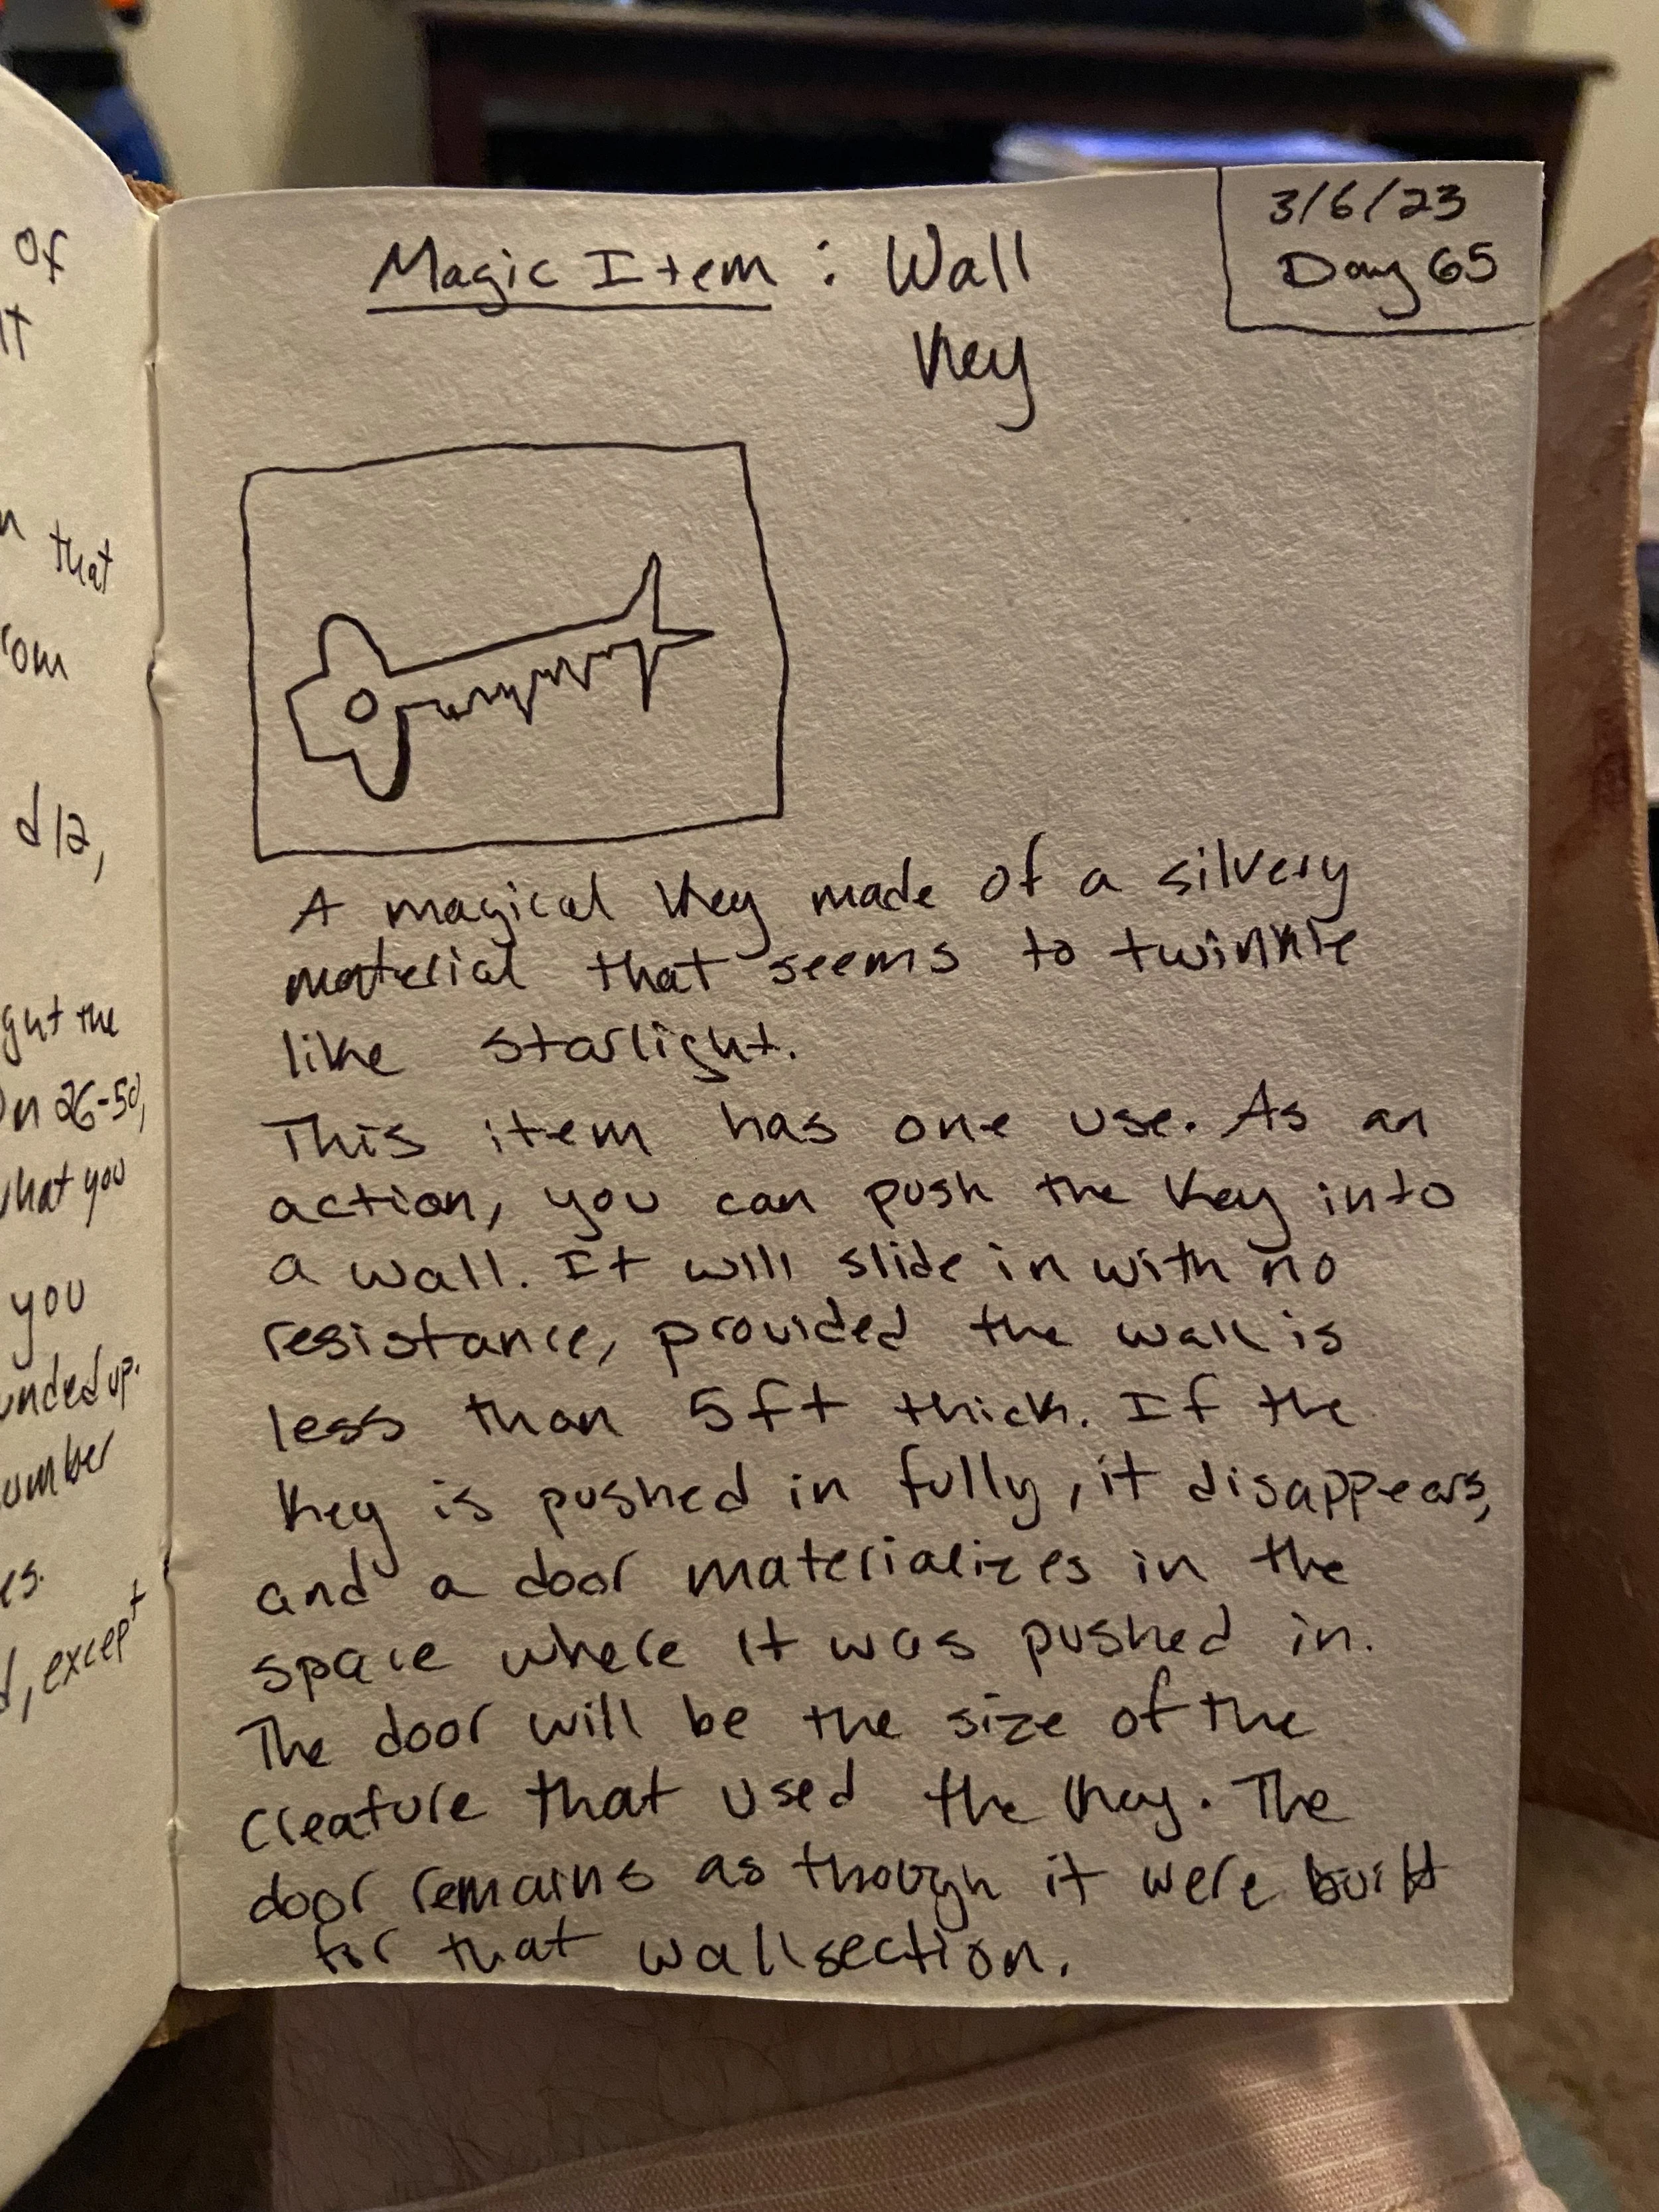 of
It
that
from
d12,
the
on 26-50,
what you
you
rounded up.
number
d, except
3/6/23
Day 65
Magic Item: Wall
Key
A magical key made of a silvery
material that seems to twinkle
like starlight.
This item has one use. As an
action, you can push the key into
a wall. It will slide in with no
resistance, provided the wall is
less than 5ft thick. If the
key is pushed in fully, it disappears,
and a door materializes in the
space where it was pushed in.
The door will be the size of the
creature that used the key. The
door remains as though it were built
for that wall section.